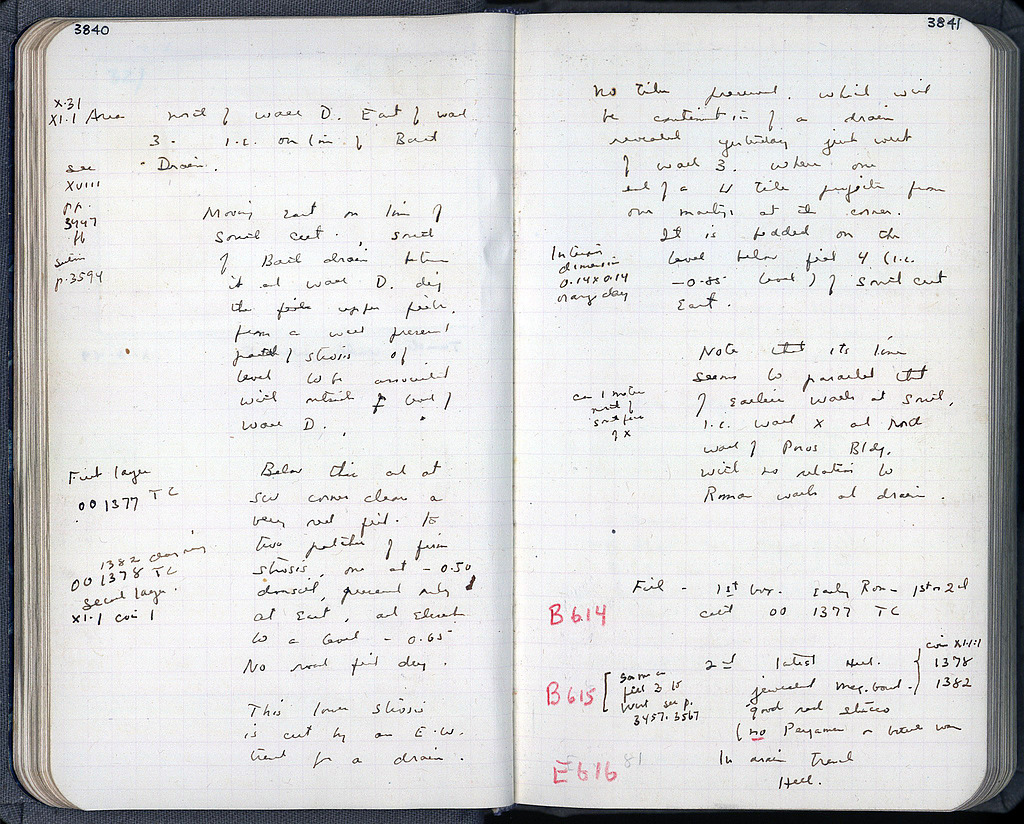 3840
X·31
XI·1 Area north of wall D. East of wall
3 - i.e. on line of Basil
Drain.
see
XVIII
pp.
3447
ff
p.3594
Moving East on line of
South cut. , south
of Basil drain between
it and wall D. dig
the upper fill.
from a well preserved
patch of strosis of
level to be associated
with outside level of
wall D.
First layer
00 1377 TC
Below this and at
SW corner clear a
very red fill. to
two patches of firm
strosis, one at - 0.50
preserved only
at East, and
to a level - 0.65
No red fill dug.
1382
00 1378 TC
Second layer.
XI·1 coin 1
This lower strosis
is cut by an E-W.
trench for a drain.
3841
No tiles preserved. which will
be continuation of a drain
revealed yesterday just west
of wall 3. where one
end of a U tile projects from
at the corner.
It is bedded on the
level below fill 4 (i.e.
-0.85 level) of South cut
East.
Interior
dimension
0.14 x 0.14
orange clay
Note that its line
seems to parallel that
of earlier walls at South,
i.e. wall X and North
wall of Poros Bldg.
with no relation to
Roman walls and drain.
ca 1 meter
north of
south face
of X
Fill - 1st box. Early Rom - 1st or 2nd
cent 00 1377 TC
B 614
2nd latest Hell.
coin XI·1:1
1378
1382
B 615
same as
fill 3 to
west see p.
3457. 3567
Meg. bowl.
good red stucco
(no Pergamene or
E 616
81
In drain trench
Hell.